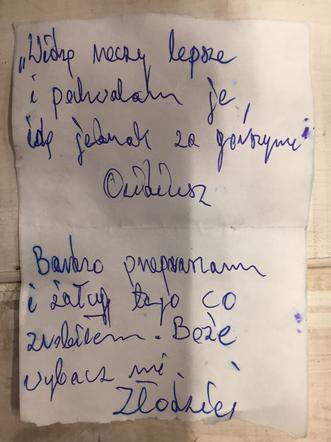 „Widzę rzeczy lepsze
i pochwalam je,
idę jednak za gorszymi”
Owidiusz
Bardzo przepraszam
i żałuję tego co
zrobiłem. Boże
wybacz mi.
Złodziej